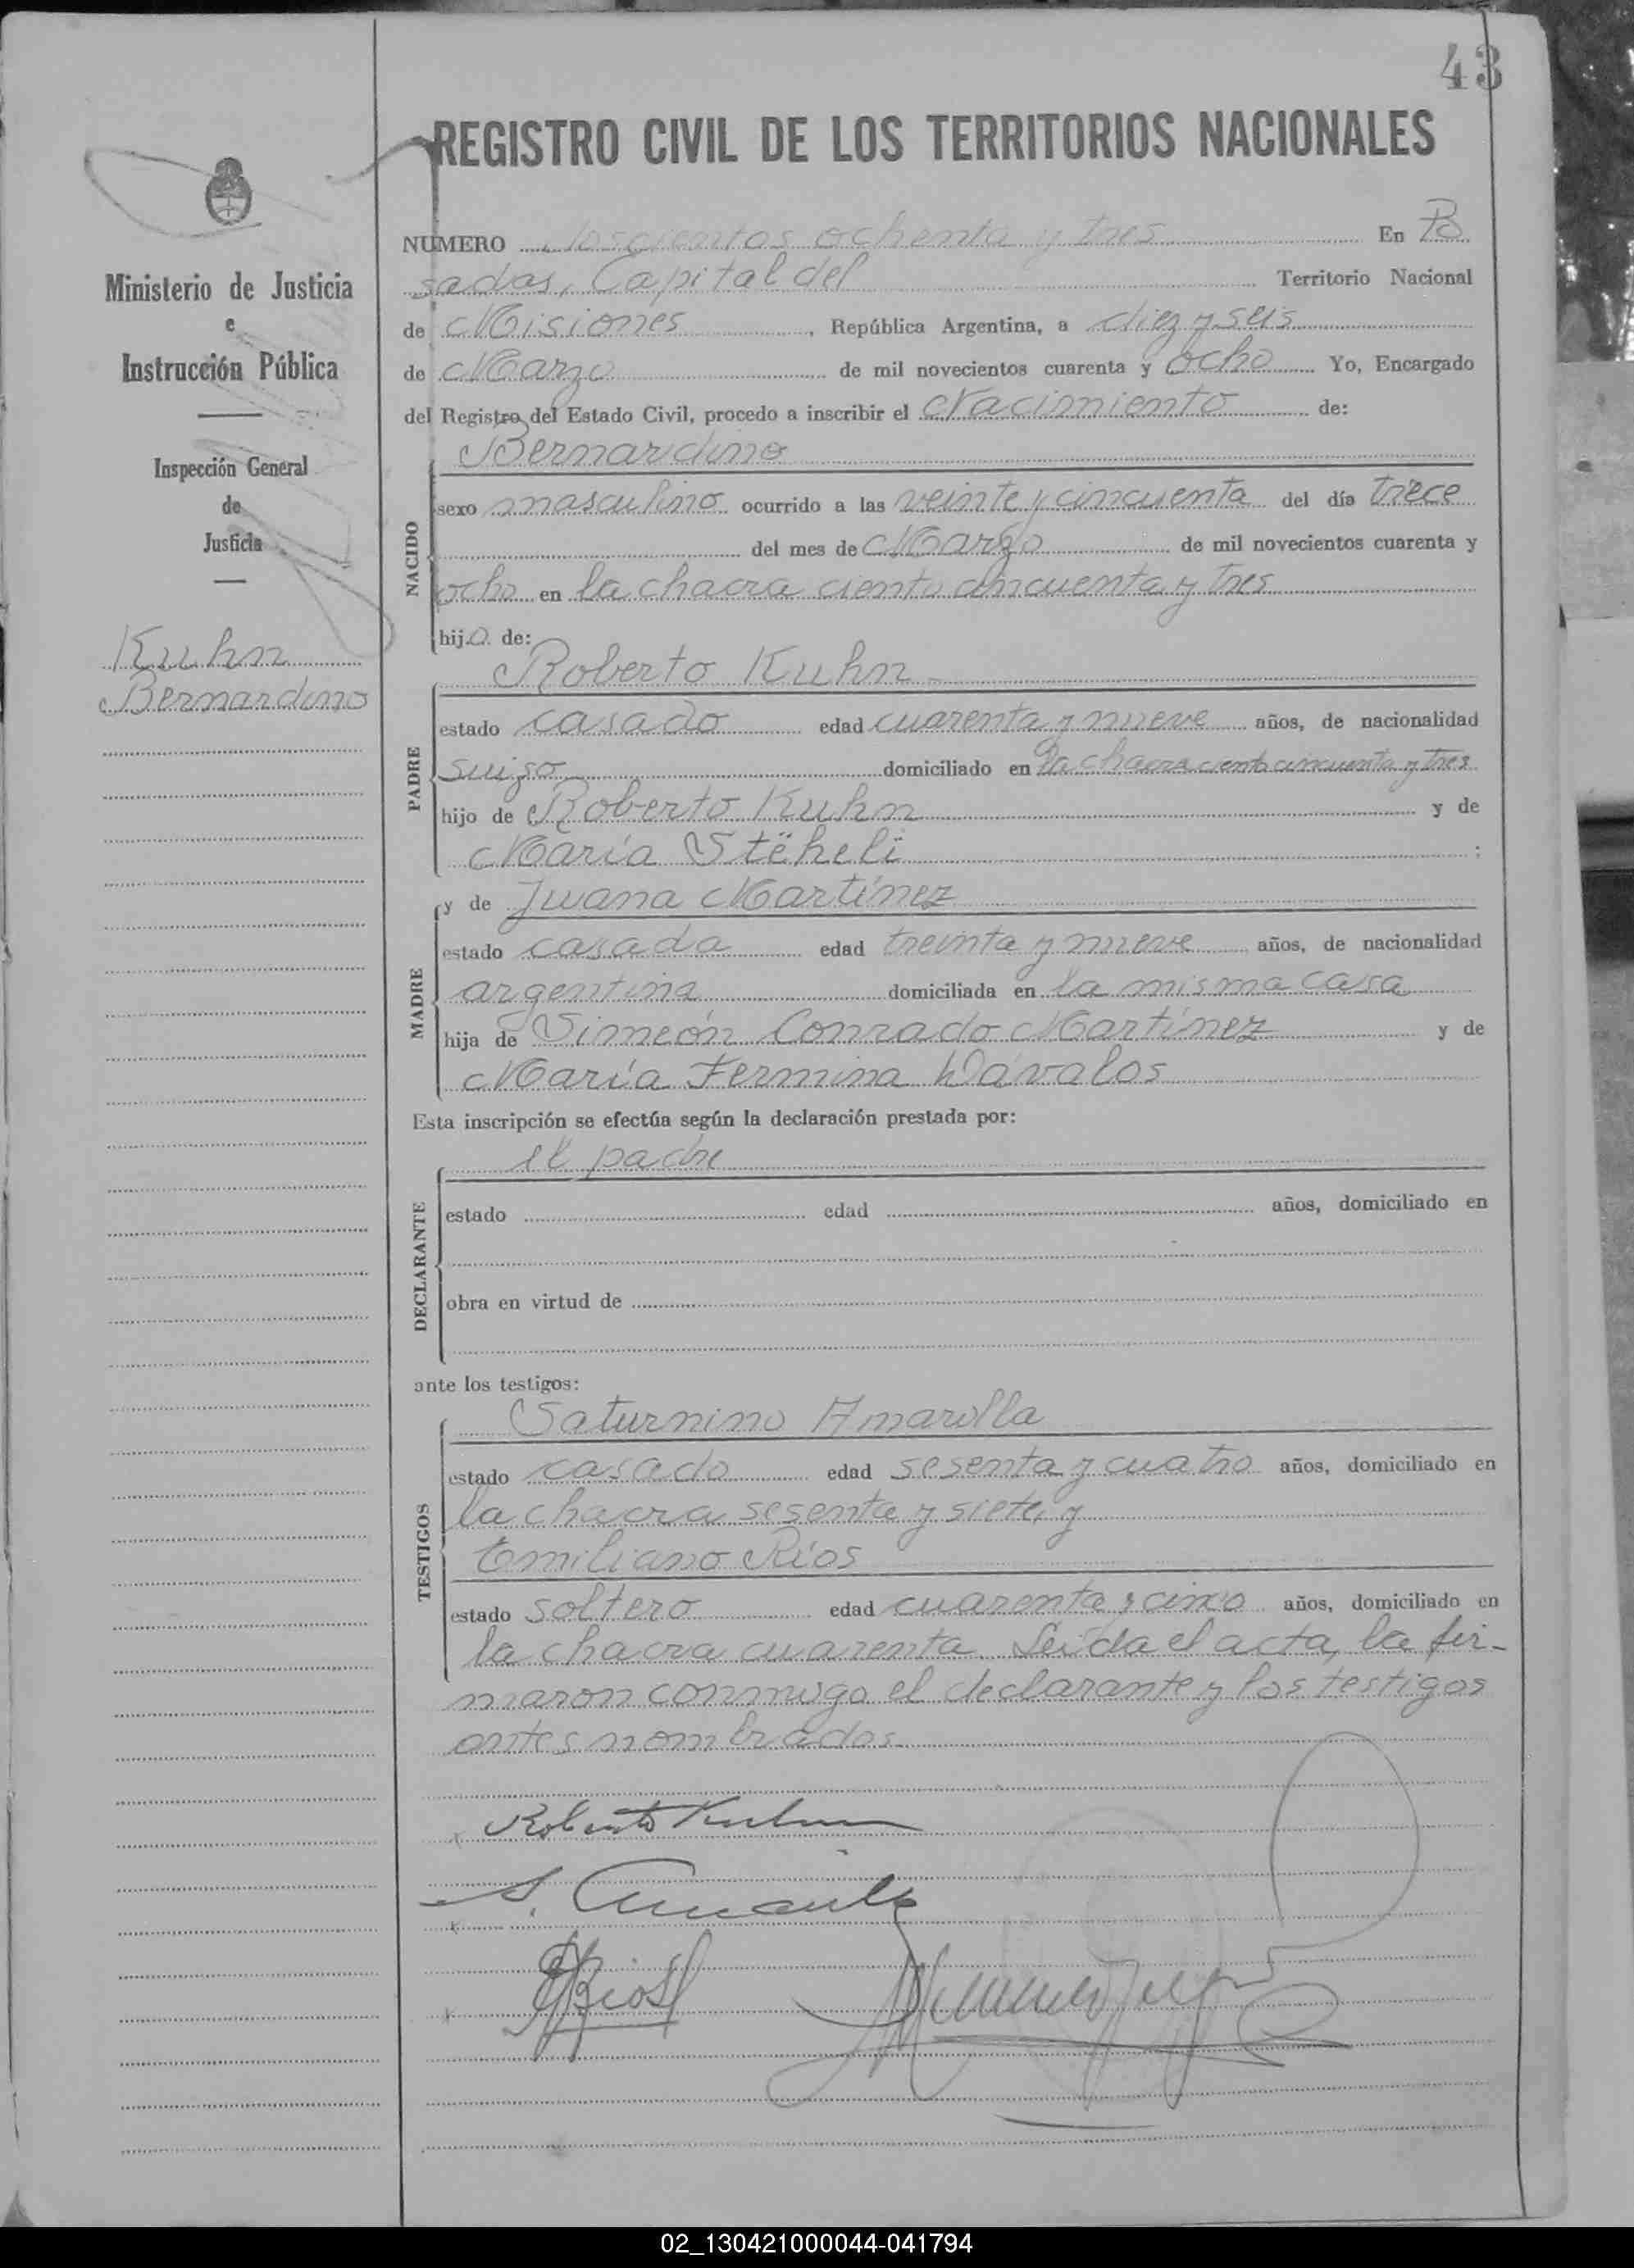 43
REGISTRO CIVIL DE LOS TERRITORIOS NACIONALES
NUMERO doscientos ochenta y tres En Po
sadas, Capital del Territorio Nacional
de Misiones, República Argentina, a diez y seis
de Marzo de mil novecientos cuarenta y ocho Yo, Encargado
del Registro del Estado Civil, procedo a inscribir el Nacimiento de:
Ministerio de Justicia
e
Instrucción Pública
Inspección General
de
Justicia
Kuhn
Bernardino
NACIDO
Bernardino
sexo masculino ocurrido a las veinte y cincuenta del día trece
del mes de Marzo de mil novecientos cuarenta y
ocho en la chacra ciento cincuenta y tres
hijo de:
PADRE
Roberto Kuhn
estado casado edad cuarenta y nueve años, de nacionalidad
suizo domiciliado en la chacra ciento cincuenta y tres
hijo de Roberto Kuhn y de
María Stëhelï ;
MADRE
y de Juana Martínez
estado casada edad treinta y nueve años, de nacionalidad
argentina domiciliada en la misma casa
hija de Simeón Conrado Martínez y de
María Fermina Dávalos
Esta inscripción se efectúa según la declaración prestada por:
DECLARANTE
el padre
estado edad años, domiciliado en
obra en virtud de
ante los testigos:
TESTIGOS
Saturnino Amarilla
estado casado edad sesenta y cuatro años, domiciliado en
la chacra sesenta y siete, y
Emiliano Ríos
estado soltero edad cuarenta y cinco años, domiciliado en
la chacra cuarenta. Leída el acta, la fir-
maron conmigo el declarante y los testigos
antes nombrados.
Roberto Kuhn
S. Amarilla
E Rios
02_130421000044-041794